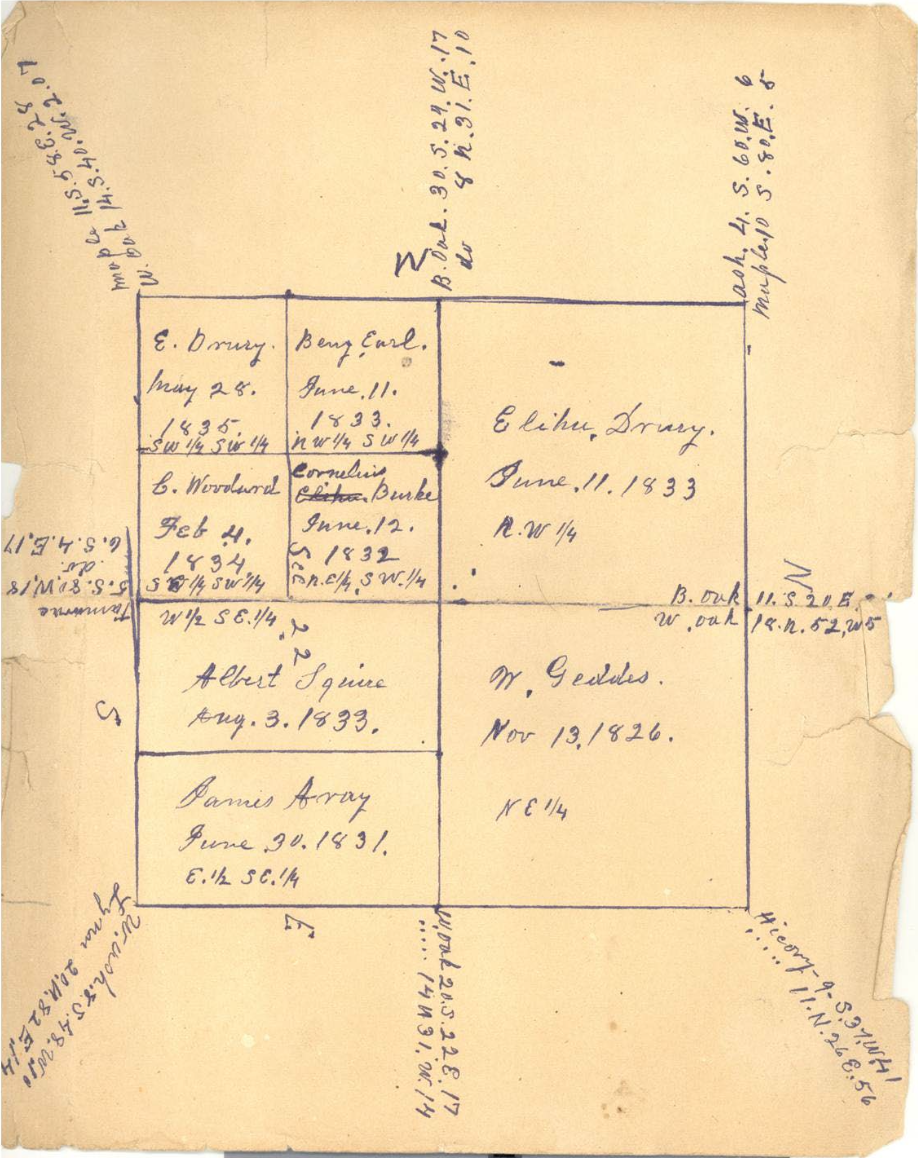 maple 11.S.583.28
W. Oak 14.S.40.W.2.07
B. Oak. 30.S.24.W.17
do 8 N.31.E.10
ash. 4. S. 60.W. 6
Maple.10 S. 80.E. 5
W
E. Drury.
May 28.
1835.
SW 1/4 SW 1/4
Benj Earl.
June.11.
1833.
NW 1/4 SW 1/4
Elihu. Drury.
June.11.1833
N.W 1/4
C. Woodard
Feb 4.
1834.
SE 1/4 SW 1/4
Cornelius
Elihu. Burke
June.12.
1832
N.E 1/4 S.W. 1/4
Sec
22
Tamarac
5.S.80.W.18
do.
6.S.4.E.17
S
N
B. oak 11.S.20 E.
W. oak 18.N.52.W5
W 1/2 S E. 1/4
Albert Squire
Aug. 3. 1833.
W. Geddes.
Nov 13.1826.
N E 1/4
James Aray
June 30.1831.
E. 1/2 S E. 1/4
E
W. ash. 8 S.48.W.
Lynn 20.N.82 E.14
W.oak 20.S.22E.17
..... 14 N 31. W. 14
Hicory-9-S.37.W41
..... 11.N.26E.56